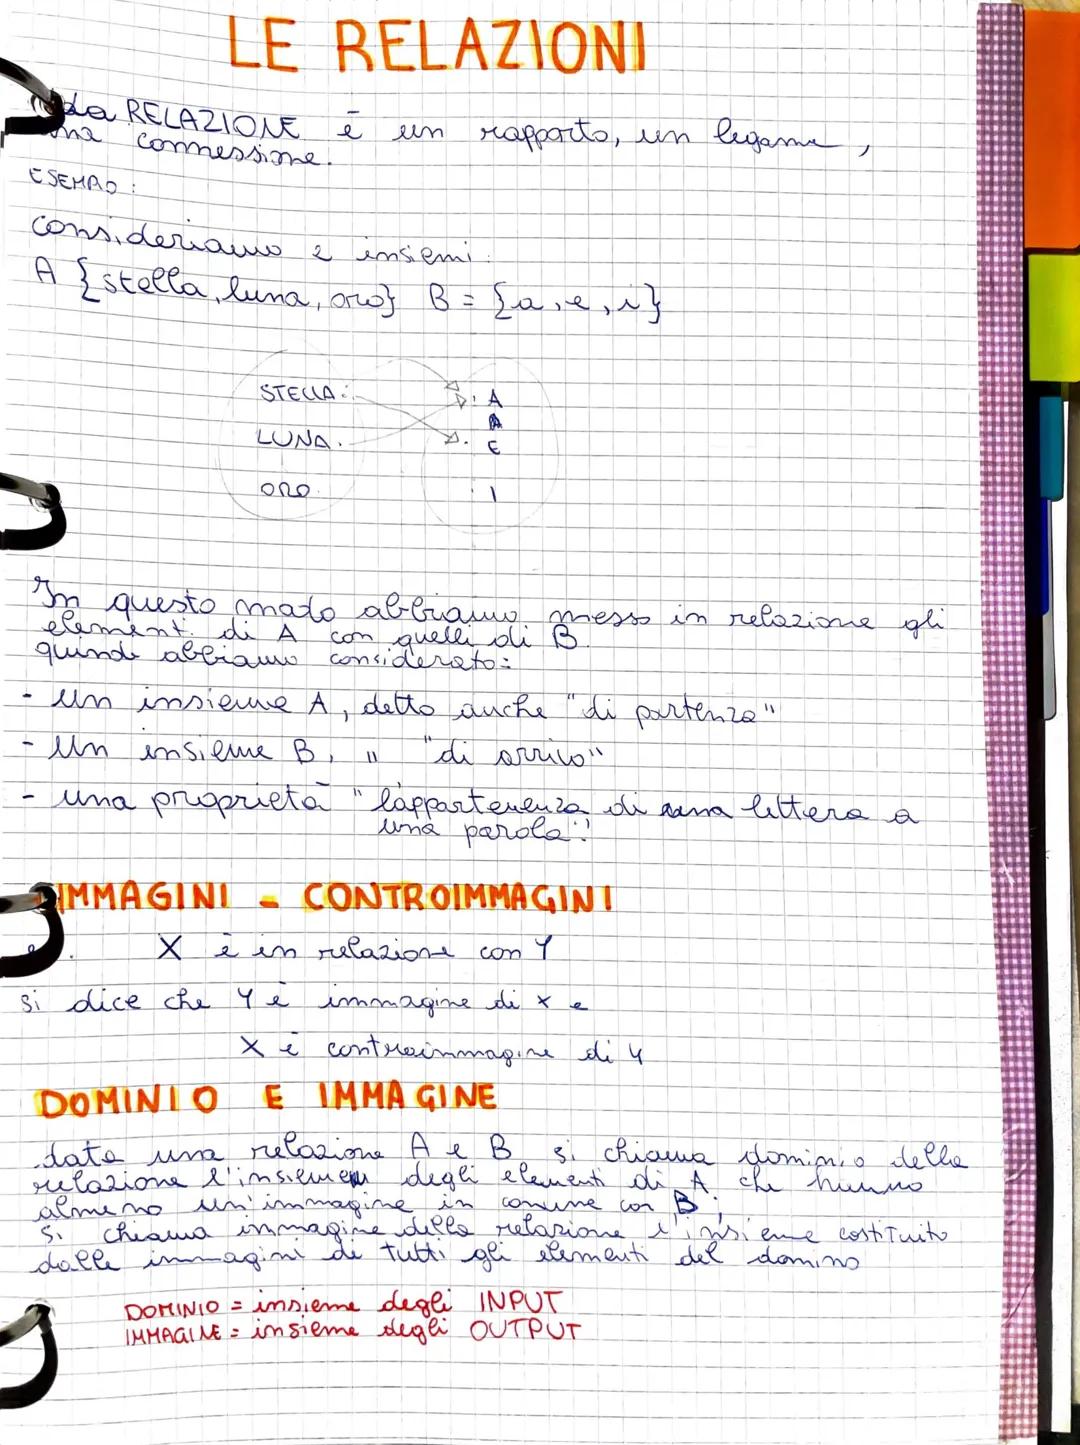 LE RELAZIONI
La RELAZIONE è un rapporto, un legame,
una connessione.
ESEMPIO:
consideriamo 2 insiemi:
A {stella, luna, oro} B = {a, e, i}
STELLA A
LUNA E
ORO I
In questo modo abbiamo messo in relazione gli
elementi di A con quelli di B.
quindi abbiamo considerato:
- un insieme A, detto anche "di partenza"
- un insieme B, " "di arrivo"
- una proprietà "l'appartenenza di una lettera a
una parola"
IMMAGINI - CONTROIMMAGINI
X è in relazione con Y
si dice che Y è immagine di x e
X è controimmagine di y
DOMINIO E IMMAGINE
data una relazione A e B si chiama dominio della
relazione l'insieme degli elementi di A che hanno
almeno un'immagine in comune con B,
si chiama immagine della relazione l'insieme costituito
dalle immagini di tutti gli elementi del domino
DOMINIO = insieme degli INPUT
IMMAGINE = insieme degli OUTPUT